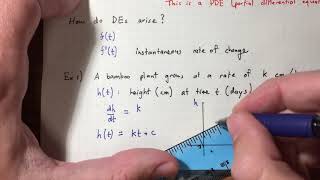 This is a PDE (partial differential equa
How do DEs arise?
f(t)
f'(t) instantaneous rate of change
Ex 1) A bamboo plant grows at a rate of k cm/
h(t): height (cm) at time t (days)
dh/dt = k
h
h(t) = kt + c